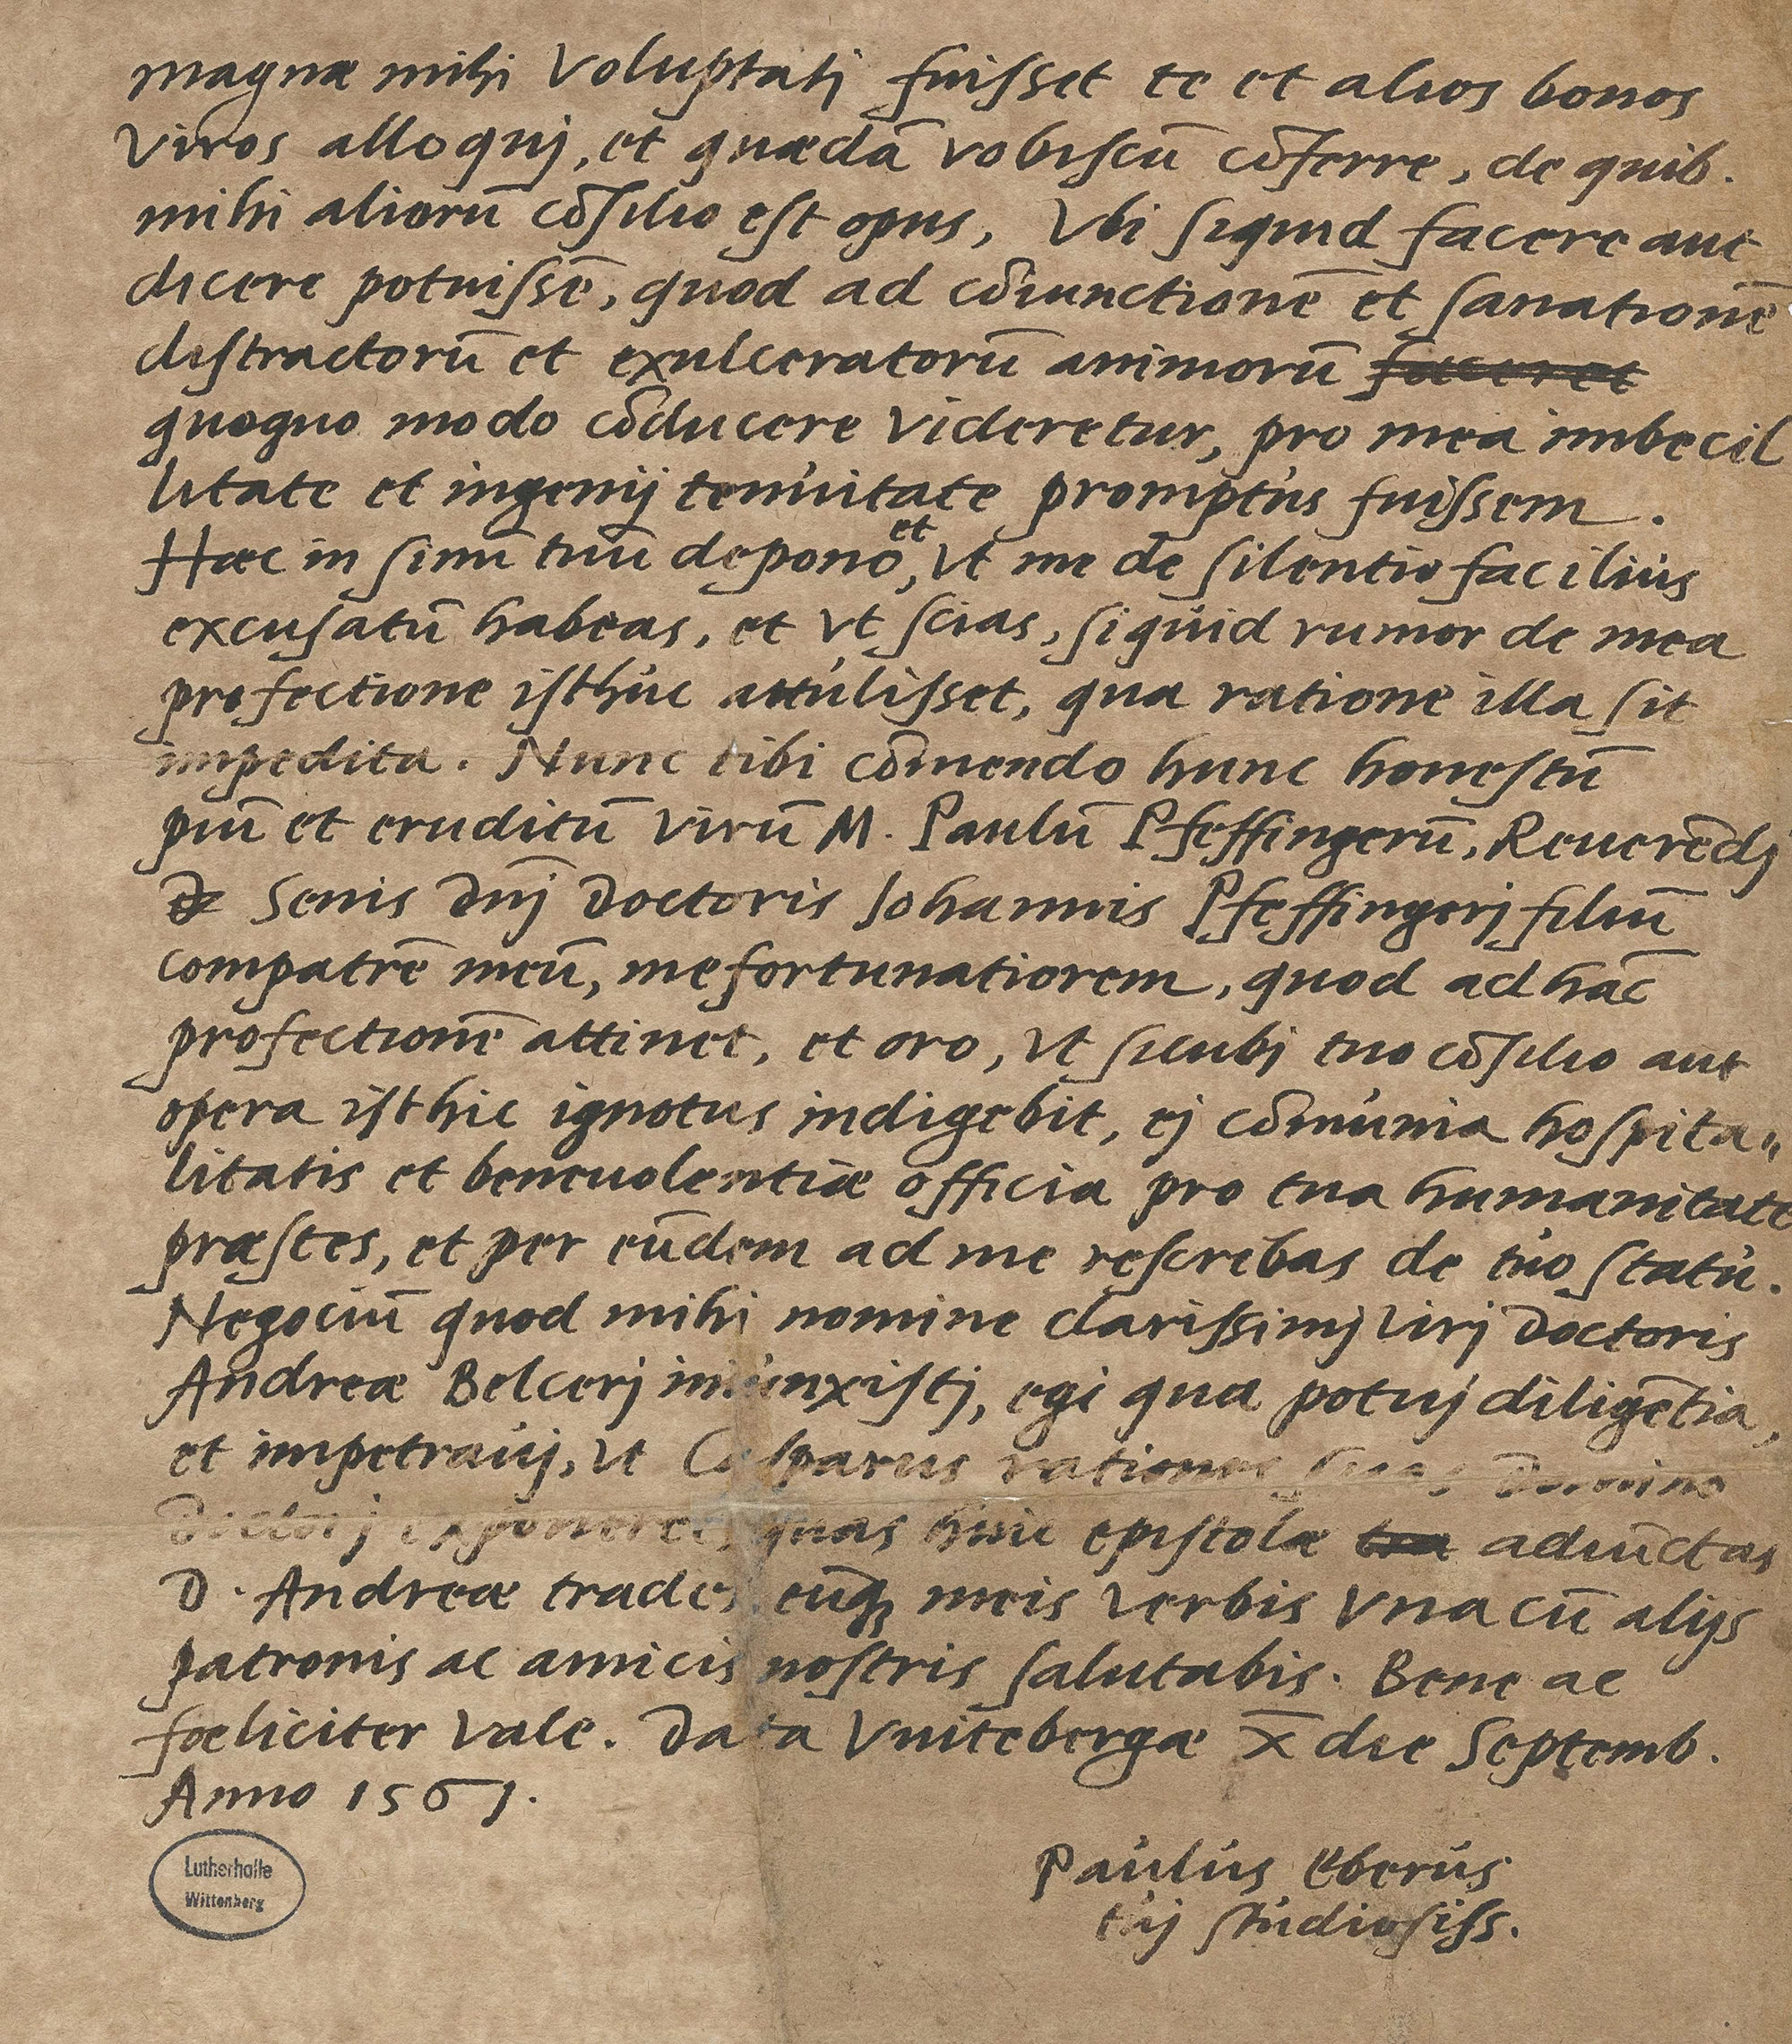 magnæ mihi voluptatj fuisset te et alios bonos
viros alloquj, et quædā vobiscū cōferre, de quib.
mihi aliorū cōsilio est opus, Vbi siquid facere aut
dicere potuissē, quod ad cōiunctionē et sanationē
distractorū et exulceratorū animorū faceret
quoquo modo cōducere videretur, pro mea imbecil
litate et ingenij tenuitate promptus fuissem.
et
Hæc in sinū tuū depono, vt me de silentio facilius
excusatū habeas, et vt scias, siquid rumor de mea
profectione isthuc attulisset, qua ratione illa sit
impedita. Nunc tibi cōmendo hunc honestū
piū et eruditū virū M. Paulū Pfeffingerū, Reuerēdj
Senis Dnj Doctoris Johannis Pfeffingerj filiū
compatrē meū, me fortunatiorem, quod ad hāc
profectionē attinet, et oro, vt sicubj tuo cōsilio aut
opera isthic ignotus indigebit, ej cōmunia hospita„
litatis et beneuolentiæ officia pro tua humanitate
præstes, et per eūdem ad me rescrebas de tuo statu.
Negociū quod mihi nomine clarissimj virj Doctoris
Andreæ Belcerj iniunxistj, egi qua potuj diligētia,
et impetrauj, vt Casparus rationes suas Domino
Doctorj exponeret, quas huic epistolæ adiūctas
D. Andreæ trades eūq; meis verbis vna cū alijs
patronis ac amicis nostris salutabis. Bene ac
fœliciter vale. Data Vuitebergæ X̄ die Septemb.
Anno 1561.
Paulus Eberus
tuj studiosiss.
Lutherhalle
Wittenberg